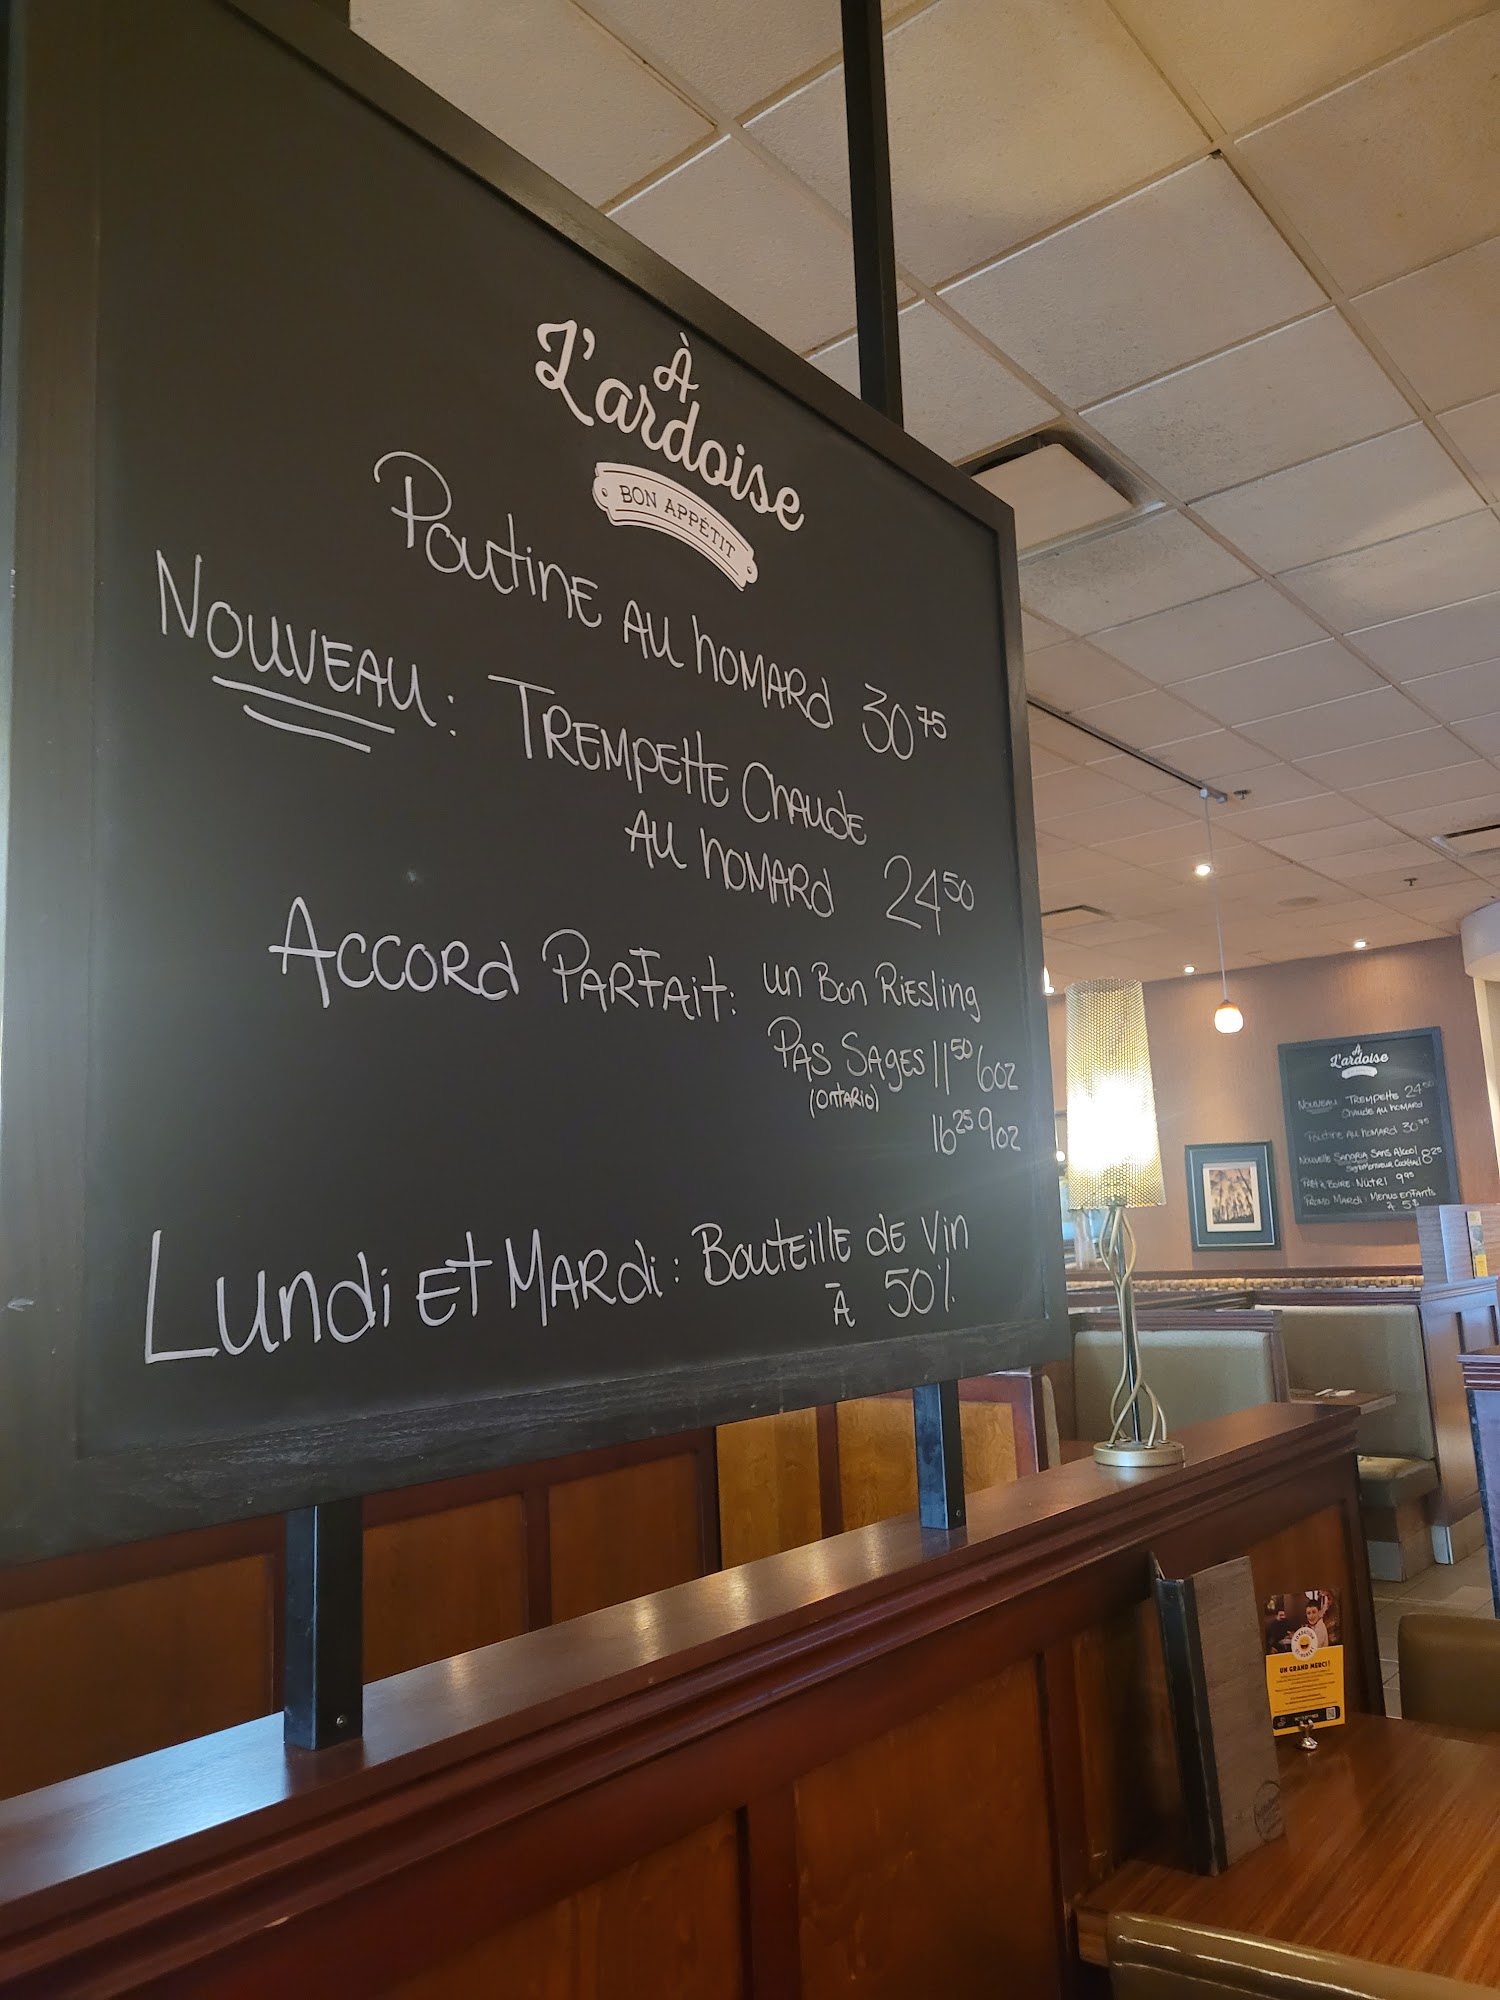 À
L'ardoise
BON APPÉTIT
Poutine au homard 30 75
Nouveau : Trempette Chaude
au homard 24 50
Accord Parfait : un Bon Riesling
Pas Sages 11 50 6oz
(Ontario)
16 25 9oz
Lundi et Mardi : Bouteille de Vin
à 50%
À
L'ardoise
Nouveau Trempette 24 50
Chaude au homard
Poutine au homard 30 75
Nouvelle Sangria Sans Alcool 8 25
Monsieur Cocktail
Prêt à Boire : Nütrl 9 95
Promo Mardi : Menus enfants
à 5$
UN GRAND MERCI !